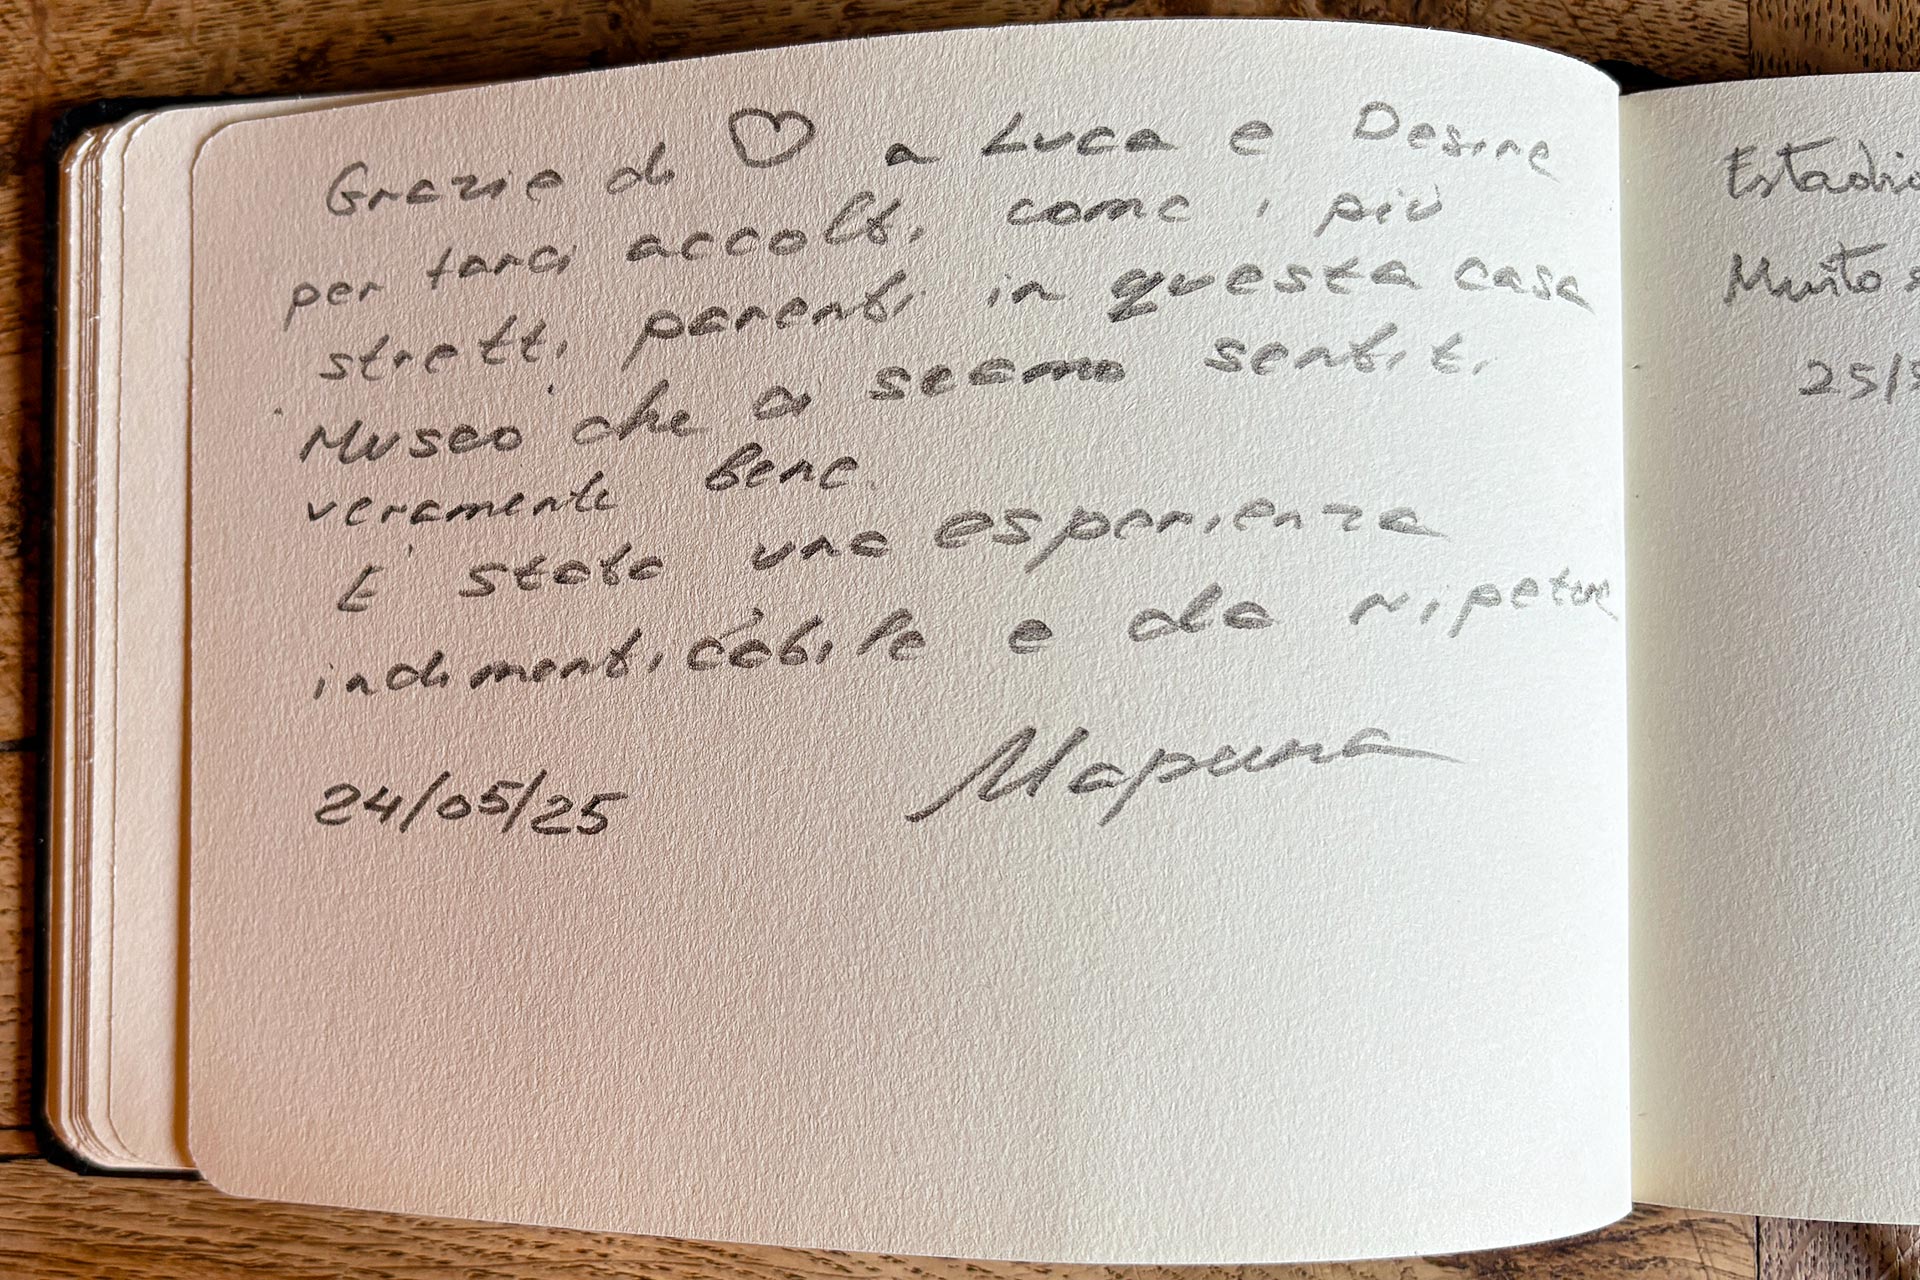 Grazie di ♡ a Luca e Desire
per farci accolti, come i più
stretti parenti in questa casa
Museo che ci siamo sentiti
veramente bene.
E' stata una esperienza
indimenticabile e da ripetere
24/05/25 Марина
Estadio
Muito s
25/5